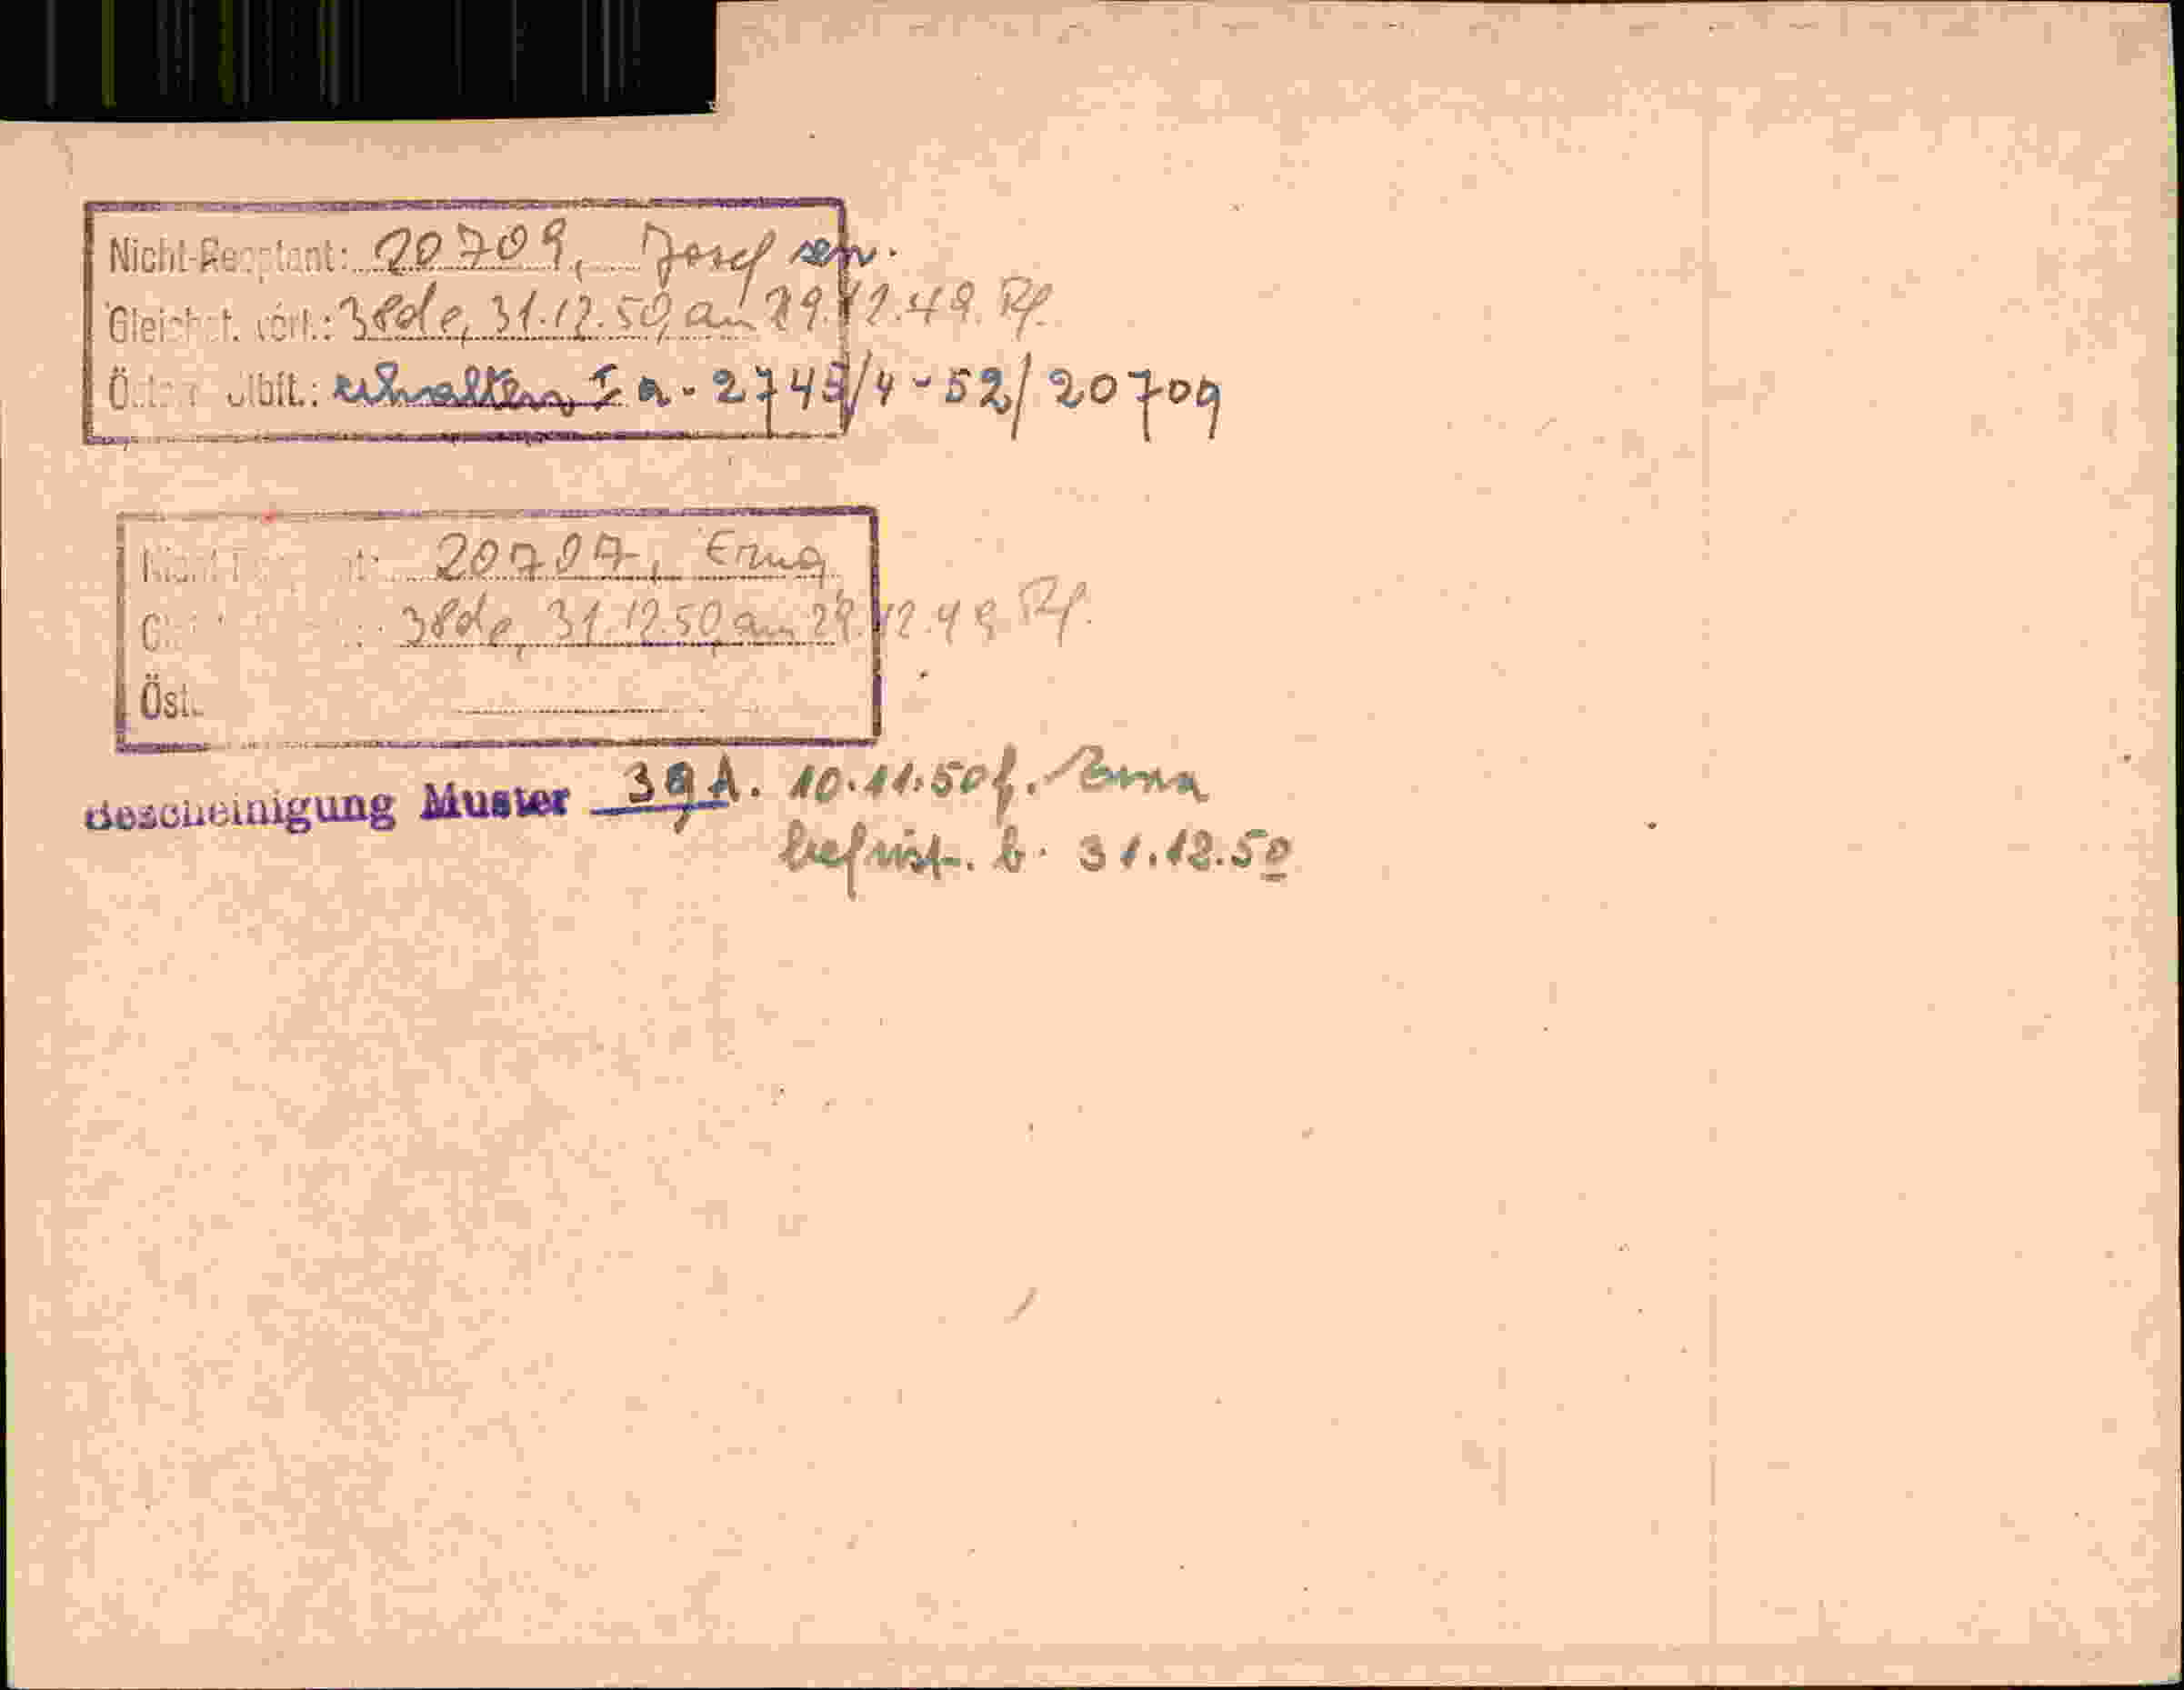 Nicht-Reoptant: 20709, Josef sen.
Gleichst. vorl.: 38de, 31.12.50, am 29.12.49. Rf.
erhalten I a - 2745/4-52/20709
20707, Erna
38de, 31.12.50, am 29.12.49 Rf.
Öst.
Bescheinigung Muster 39A. 10.11.50 f. Erna
befrist. b. 31.12.50